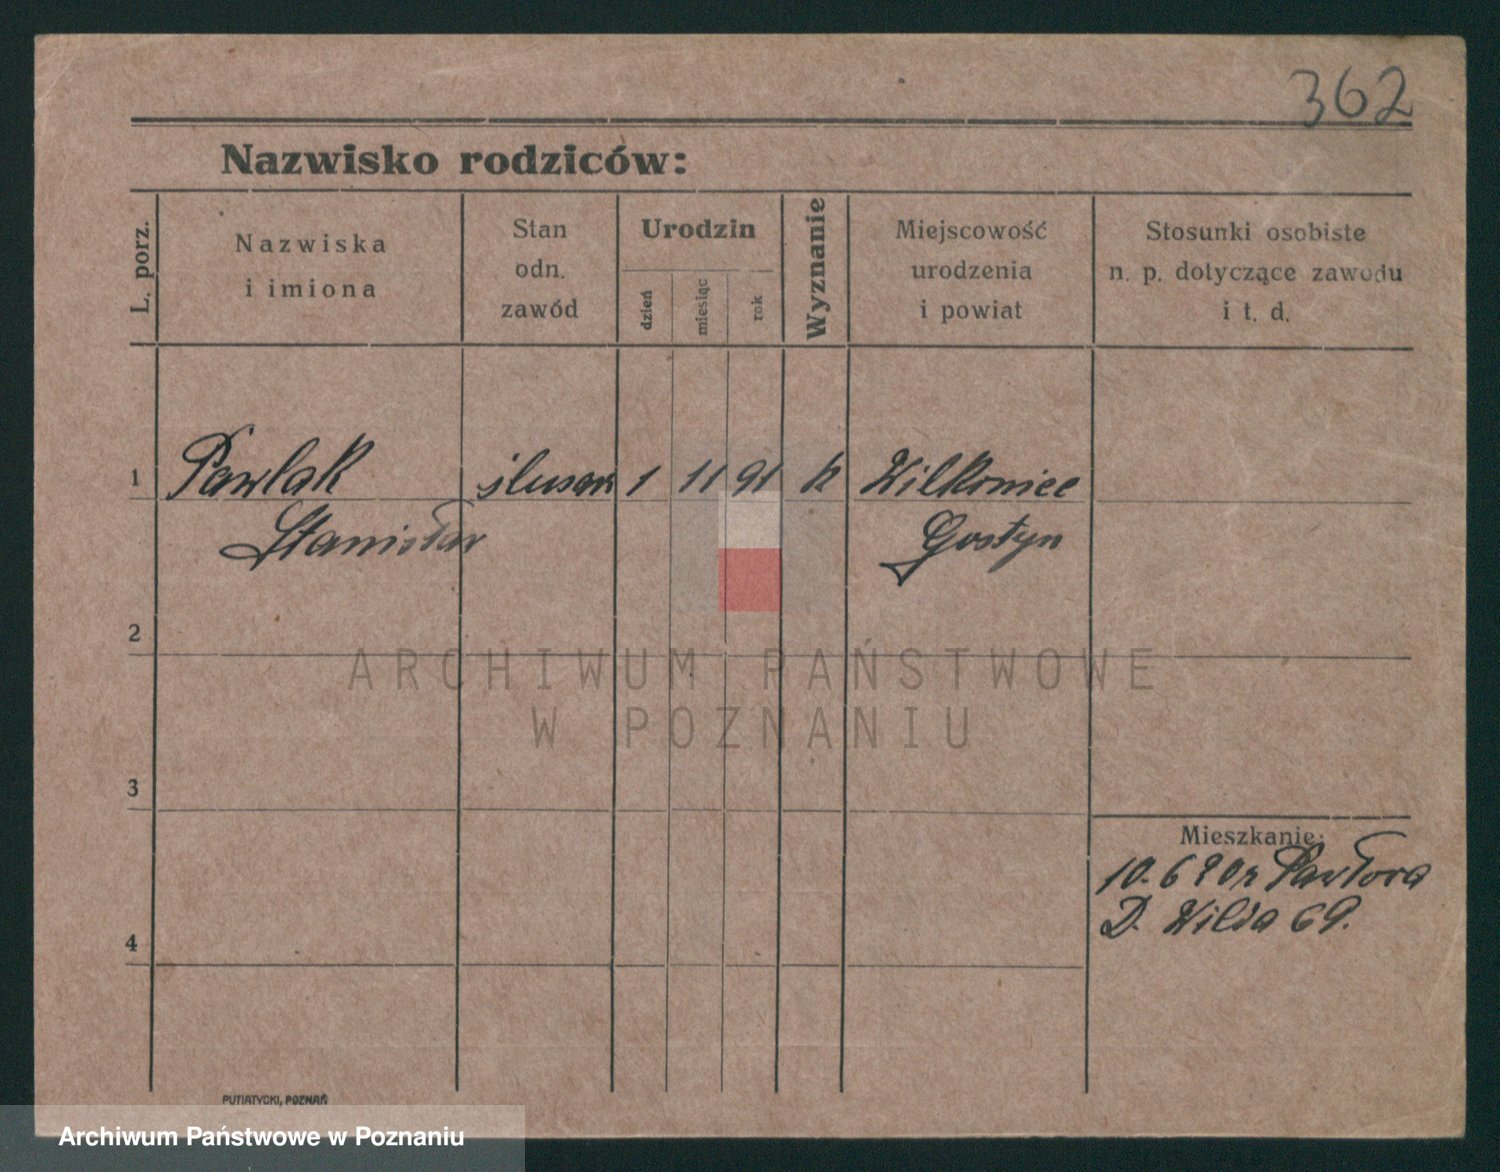 362
Nazwisko rodziców:
L. porz.
Nazwiska
i imiona
Stan
odn.
zawód
Urodzin
dzień
miesiąc
rok
Wyznanie
Miejscowość
urodzenia
i powiat
Stosunki osobiste
n. p. dotyczące zawodu
i t. d.
1 Pawlak ślusarz 1 11 91 k Wilkoniec
Stanisław Gostyn
2
ARCHIWUM PAŃSTWOWE
W POZNANIU
3
Mieszkanie:
10.6 20r
D. Wilda 69.
4
PUTIATYCKI, POZNAŃ
Archiwum Państwowe w Poznaniu